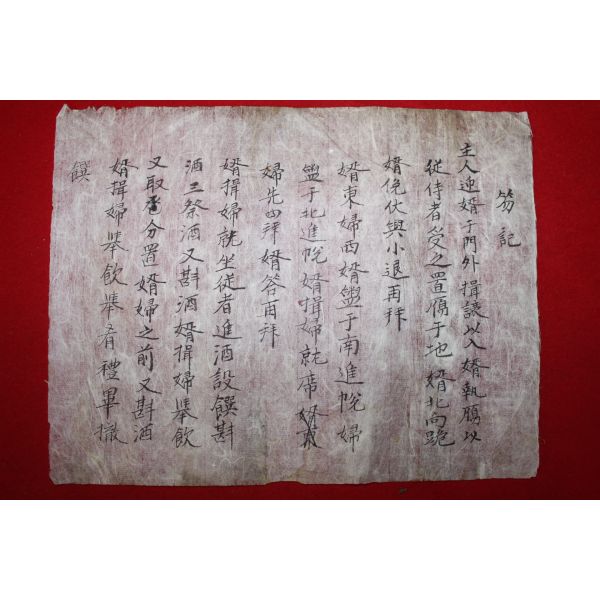 笏記
主人迎婿于門外揖讓以入婿執鴈以
從侍者受之置鴈于地婿北向跪
婿俛伏興小退再拜
婿東婦西婿盥于南進帨婦
盥于北進帨婿揖婦就席
婦先四拜婿答再拜
婿揖婦就坐從者進酒設饌斟
酒三祭酒又斟酒婿揖婦擧飮
又取分置婿婦之前又斟酒
婿揖婦擧飮擧肴禮畢撤
饌